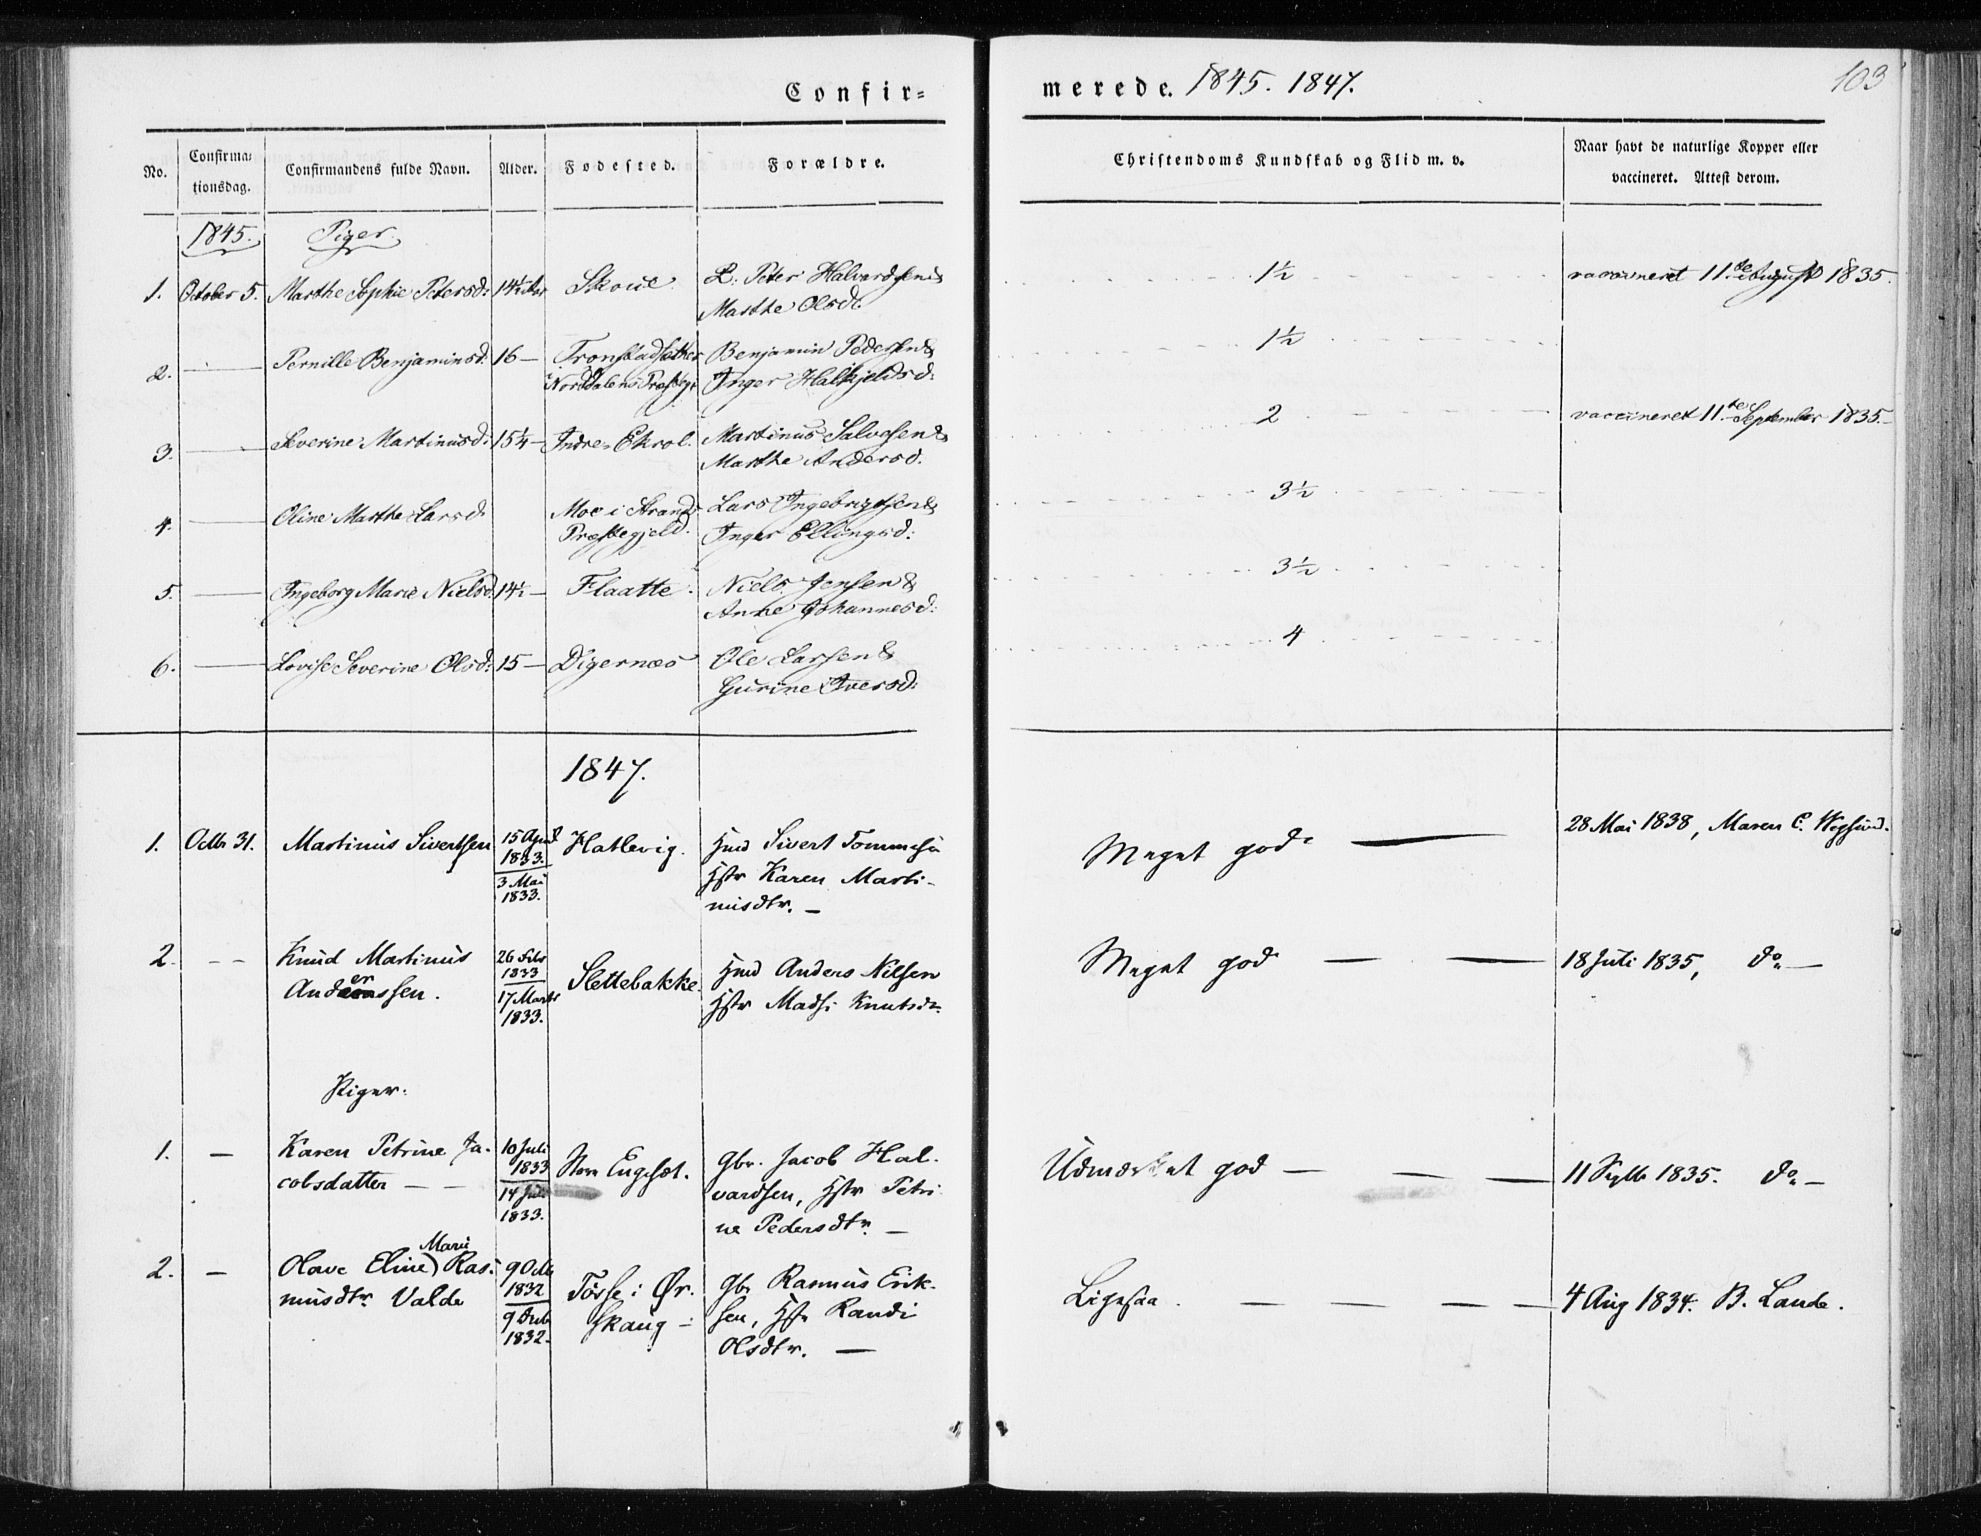 Confir=
merede. 1845. 1847.
103
No.
Confirma=
tionsdag.
Confirmandens fulde Navn.
Alder.
Fødested.
Forældre.
Christendoms Kundskab og Flid m. v.
Naar havt de naturlige Kopper eller
vaccineret. Attest derom.
1845. Piger.
1. October 5. Marthe Sophie Petersd: 14½ Aar Skoue P. Peter Halvardsen &
Marthe Olsd. 1½ vaccineret 11te August 1835.
2. Pernille Benjaminsd. 16 — Tronstadsæther Benjamin Pedersen &
Norddalens Præstgj. Inger Halkjeldsd: 1½
3. Severine Martinusd: 15¼ — Indre Ekrol. Martinus Salvesen &
Marthe Andersd. 2 vaccineret 11te September 1835. —
4. Oline Marthe Larsd. Moe i Strands Lars Ingebrigtsen &
Præstegjeld. Inger Ellingsd: 3½
5. Ingeborg Marie Nielsd. 14½ — Flaatte. Niels Jensen &
Anne Johannesd: 3½
6. Lovise Severine Olsd: 15 — Digernæs Ole Larsen &
Gurine Iversd: 4
1847.
1. Octbr 31. Martinus Sivertsen 15 April
1833.
3 Mai
1833.
Hatlevig. Hmd Sivert Tommesen
Hstr Karen Marti-
nusdtr. —
Meget god — 28 Mai 1838, Maren C.
2. — — Knud Martinus
Anderssen.
26 Febr
1833
17 Marts
1833.
Slettebakke. Hmd Anders Nilsen
Hstr Madsi Knutsdtr.
Meget god — — — 18 Juli 1835, do —
Piger.
1. — Karen Petrine Ja-
cobsdatter — —
10 Juli
1833
14 Juli
1833.
Store Engeset. Gbr. Jacob Hal-
vardsen, Hstr Petri-
ne Pedersdtr. —
Udmærket god — — — 11 Septb 1835. do —
2. — Olave Eline Marie Ras-
musdtr. Valde
9 Octb
1832
9 Decb
1832.
i Ør-
skaug — Gbr Rasmus Erik-
sen, Hstr Randi
Olsdtr. —
Ligesaa. — — — — 4 Aug 1834. B. Lande.